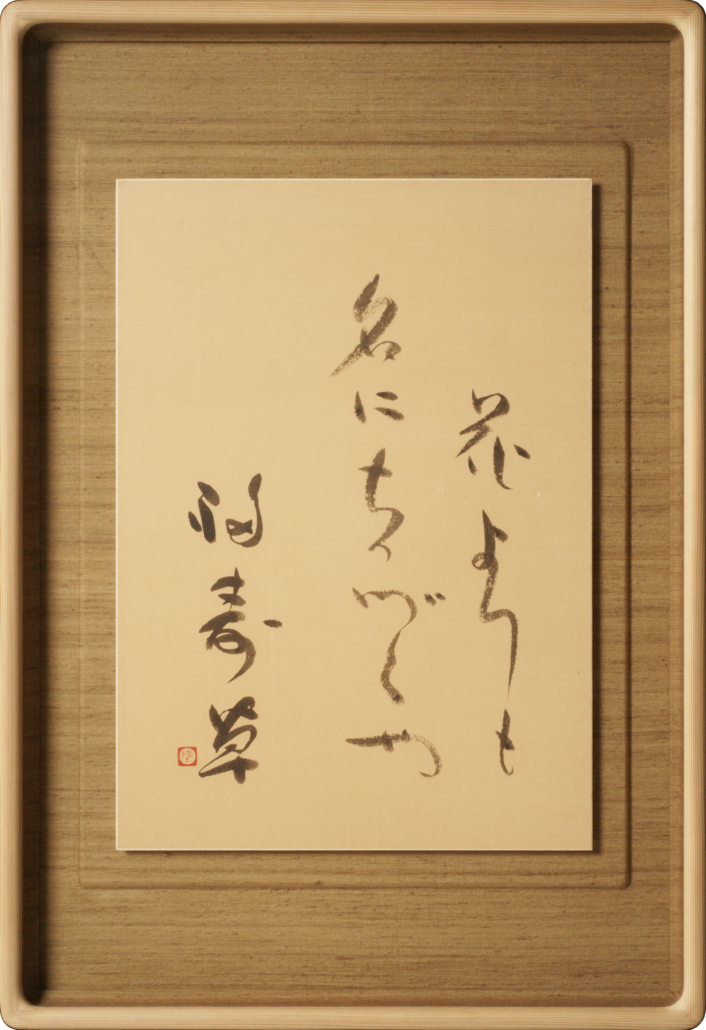 花よりも
名にちかづくや
福寿草